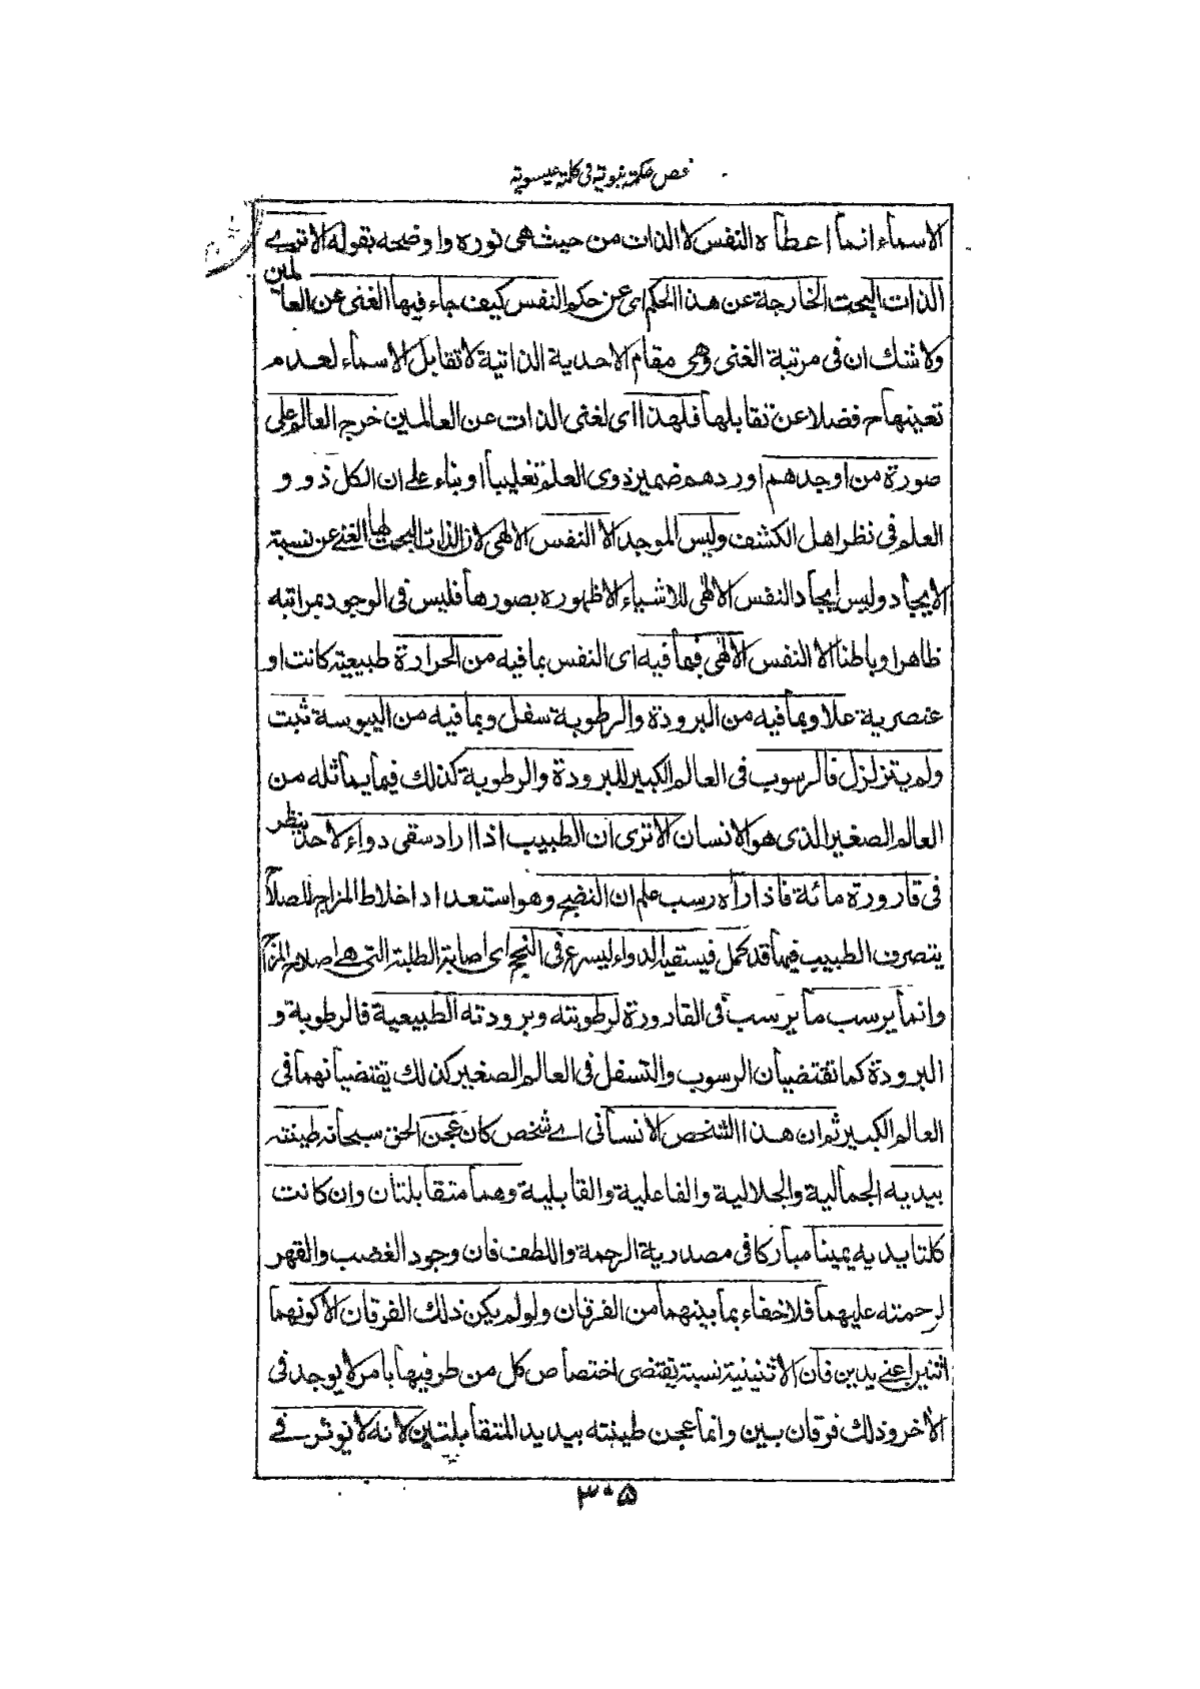 فص حكمة نبوية فى كلمة عيسوية
الاسماء انما اعطاه النفس لا الذات من حيث هى نوره واوضحه بقوله الا ترے
الذات البحت الخارجة عن هذا الحكم اى عن حكم النفس كيف جاء فيها الغنى عن العالمين
ولا شك ان فى مرتبة الغنى وهى مقام الاحدية الذاتية لا تقابل الاسماء لعدم
تعينها ح فضلا عن تقابلها فلهذا اى لغنى الذات عن العالمين خرج العالم على
صورة من اوجدهم اوردهم ضمير ذوى العلم تغليبا او بناء على ان الكل ذوو
العلم فى نظر اهل الكشف وليس الموجد الا النفس الالهى لان الذات البحت لها الغنے عن نسبة
الايجاد وليس ايجاد النفس الالهى للاشياء الا ظهوره بصورها فليس فى الوجود بمراتبه
ظاهرا وباطنا الا النفس الالهى فبما فيه اى النفس بما فيه من الحرارة طبيعية كانت او
عنصرية علا وبما فيه من البرودة والرطوبة سفل وبما فيه من اليبوسة ثبت
ولم يتزلزل فالرسوب فى العالم الكبير للبرودة والرطوبة كذلك فيما يماثله من
العالم الصغير الذى هو الانسان الا ترى ان الطبيب اذا اراد سقى دواء لاحد ينظر
فى قارورة مائة فاذا راه رسب علم ان النضج وهو استعداد اخلاط المزاج للصلاح
يتصرف الطبيب فيها قد كمل فيسقيه الدواء ليسرع فى النجح اى اصابة الطلبة التى هے اصلاح المزاج
وانما يرسب ما يرسب فى القارورة لرطوبته وبرودته الطبيعية فالرطوبة و
البرودة كما تقتضيان الرسوب والتسفل فى العالم الصغير كذلك يقتضيانهما فى
العالم الكبير ثم ان هذا الشخص الانسانى اے شخص كان عجن الحق سبحانه طينته
بيديه الجمالية والجلالية والفاعلية والقابلية وهما متقابلتان وان كانت
كلتا يديه يمينا مباركا فى مصدرية الرحمة واللطف فان وجود الغضب والقهر
لرحمته عليهما فلا خفاء بما بينهما من الفرقان ولو لم يكن ذلك الفرقان الا كونهما
اثنين اعنے يدين فان الاثنينية نسبة يقتضى اختصاص كل من طرفيها بامر لا يوجد فى
الآخر وذلك فرقان بين وانما عجن طينته بيديه المتقابلتين لانه لا يوثر فے
۳۰۵